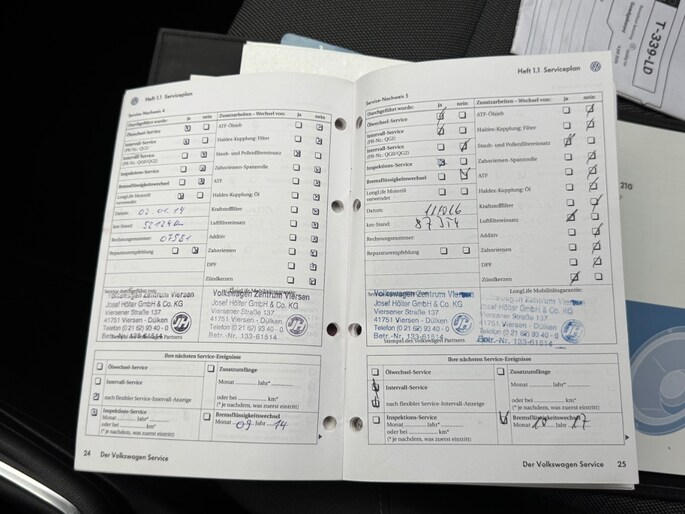 Heft 1.1 Serviceplan
Service-Nachweis 4
Durchgeführt wurde:
ja
nein
Zusatzarbeiten – Wechsel von:
ja
nein
Ölwechsel-Service
ATF-Ölsieb
Intervall-Service
(PR-Nr.: QG1)
Haldex-Kupplung: Filter
Intervall-Service
(PR-Nr.: QG0/QG2)
Staub- und Pollenfiltereinsatz
Inspektions-Service
Zahnriemen-Spannrolle
Bremsflüssigkeitswechsel
ATF
LongLife Motoröl
verwendet
Haldex-Kupplung: Öl
Datum:
02.01.14
Kraftstofffilter
km-Stand:
Luftfiltereinsatz
Rechnungsnummer:
07581
Additiv
Reparaturempfehlung
Zahnriemen
DPF
Zündkerzen
Service durchgeführt von:
LongLife Mobilitätsgarantie:
Volkswagen Zentrum Viersen
Josef Hölter GmbH & Co. KG
Viersener Straße 137
41751 Viersen - Dülken
Telefon (0 21 62) 93 40 - 0
Betr.-Nr. 133-61514
JH
Volkswagen Zentrum Viersen
Josef Hölter GmbH & Co. KG
Viersener Straße 137
41751 Viersen - Dülken
Telefon (0 21 62) 93 40 - 0
Betr.-Nr. 133-61514
JH
Stempel des Volkswagen Partners
Ihre nächsten Service-Ereignisse
Ölwechsel-Service
Zusatzumfänge
Intervall-Service
Monat Jahr*
nach flexibler Service-Intervall-Anzeige
oder bei km*
(* je nachdem, was zuerst eintritt)
Inspektions-Service
Monat Jahr*
oder bei km*
(* je nachdem, was zuerst eintritt)
Bremsflüssigkeitswechsel
Monat 09 Jahr 14
24 Der Volkswagen Service
Heft 1.1 Serviceplan
Service-Nachweis 5
Durchgeführt wurde:
ja
nein
Zusatzarbeiten – Wechsel von:
ja
nein
Ölwechsel-Service
ATF-Ölsieb
Intervall-Service
(PR-Nr.: QG1)
Haldex-Kupplung: Filter
Intervall-Service
(PR-Nr.: QG0/QG2)
Staub- und Pollenfiltereinsatz
Inspektions-Service
Zahnriemen-Spannrolle
Bremsflüssigkeitswechsel
ATF
LongLife Motoröl
verwendet
Haldex-Kupplung: Öl
Datum:
Kraftstofffilter
km-Stand:
Luftfiltereinsatz
Rechnungsnummer:
Additiv
Reparaturempfehlung
Zahnriemen
DPF
Zündkerzen
LongLife Mobilitätsgarantie:
Volkswagen Zentrum Viersen
Josef Hölter GmbH & Co. KG
Viersener Straße 137
41751 Viersen - Dülken
Telefon (0 21 62) 93 40 - 0
Betr.-Nr. 133-61514
JH
Josef Hölter GmbH & Co. KG
Viersener Straße 137
41751 Viersen - Dülken
Telefon (0 21 62) 93 40 - 0
Betr.-Nr. 133-61514
JH
Stempel des Volkswagen Partners
Ihre nächsten Service-Ereignisse
Ölwechsel-Service
Zusatzumfänge
Intervall-Service
Monat Jahr*
nach flexibler Service-Intervall-Anzeige
oder bei km*
(* je nachdem, was zuerst eintritt)
Inspektions-Service
Monat Jahr*
oder bei km*
(* je nachdem, was zuerst eintritt)
Bremsflüssigkeitswechsel
Monat Jahr 17
Der Volkswagen Service 25
T-339-LD